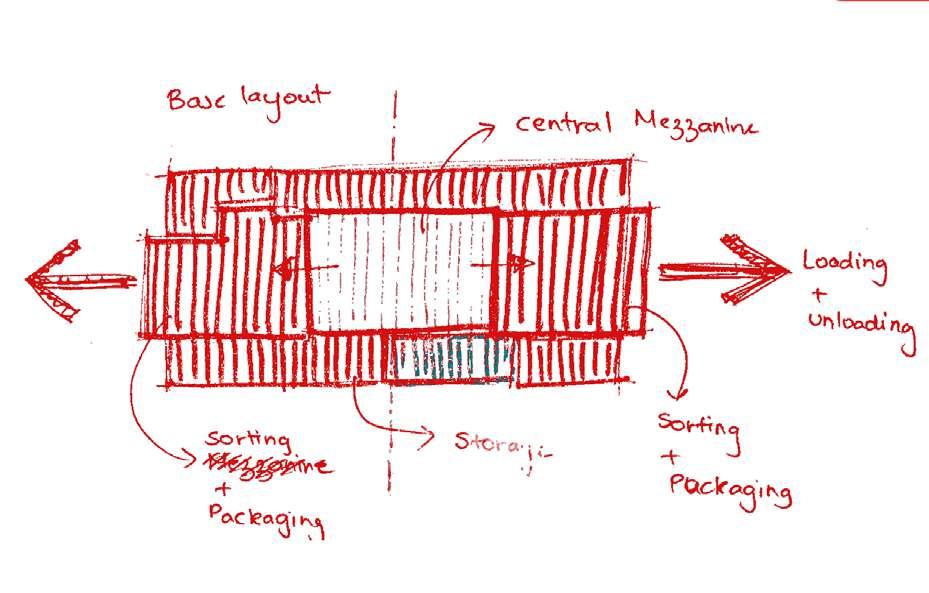 Base layout
central Mezzanine
Loading
+
unloading
Sorting
+
Packaging
Storage
Sorting
+
Packaging